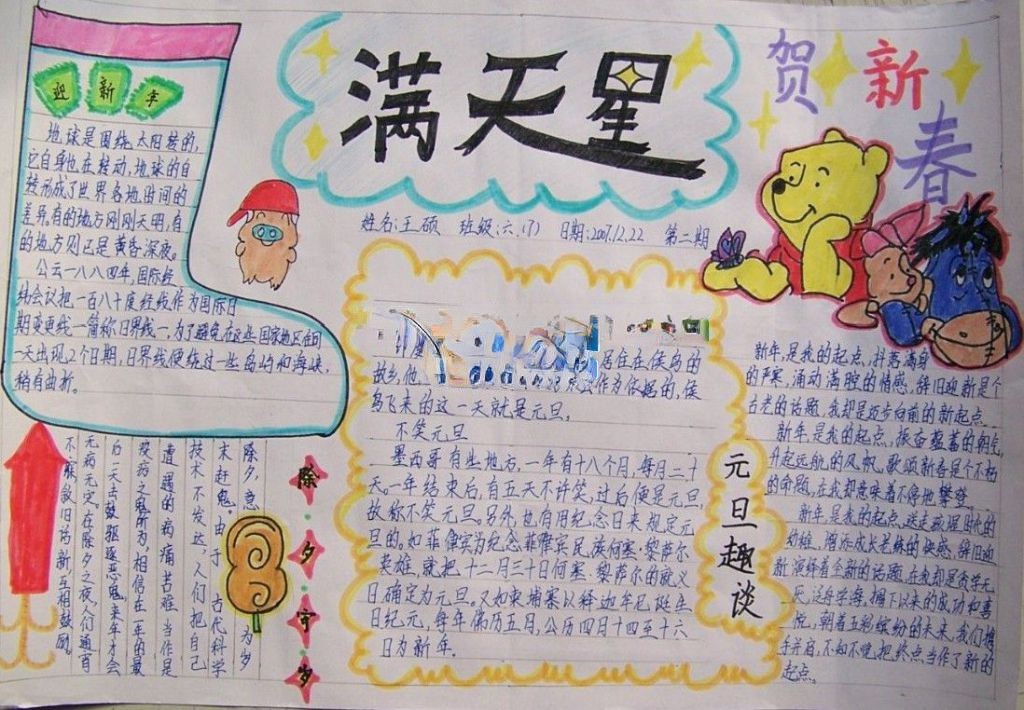 满天星
贺新春
姓名:王硕 班级:六.(7) 日期:2007.12.22 第二期
迎新年
地球是围绕太阳转的,
它自身也在转动,地球的自
转形成了世界各地时间的
差异,有的地方刚刚天明,有
的地方则已是黄昏深夜。
公元一八八四年,国际经
纬会议把一百八十度经线作为国际日
期变更线一简称日界线一.为了避免在这些国家地区在同
一天出现2个日期,日界线便绕过一些岛屿和海峡,
稍有曲折。
除夕守岁
除夕,意为岁
末赶鬼。由于古代科学
技术不发达,人们把自己
遭遇的病痛苦难当作是
疫病之鬼所为,相信在一年的最
后一天击鼓驱逐恶鬼,来年才会
无病无灾,在除夕之夜人们通宵
不寐,叙旧话新互相鼓励
元旦趣谈
居住在候鸟的
故乡,他
作为依据的,侯
鸟飞来的这一天就是元旦,
不笑元旦
墨西哥有些地方,一年有十八个月,每月二十
天。一年结束后,有五天不许笑,过后便是元旦,
故称不笑元旦。另外,也有用纪念日来规定元
旦的。如菲律宾为纪念菲律宾民族何塞·黎萨尔
英雄,就把十二月三十日何塞·黎萨尔的就义
日确定为元旦。又如柬埔寨以释迦牟尼诞生
日纪元,每年佛历五月,公历四月十四至十六
日为新年.
新年,是我的起点,抖落满身
的严寒,涌动满腔的情感,辞旧迎新是个
古老的话题,我却是迈步向前的新起点.
新年,是我的起点,振奋蓬蓄的朝点,
升起远航的风帆,歌颂新春是个不朽
的命题,在我却意味着不停地攀登
新年,是我的起点,送走
幼稚,增添成长老练的快感,辞旧迎
新演绎着全新的话题,在我却是
泛舟学海,摘下以来的成功和喜
悦,朝着五彩缤纷的未来,我们携
手并肩,不知不觉,把终点当作了新的
起点.